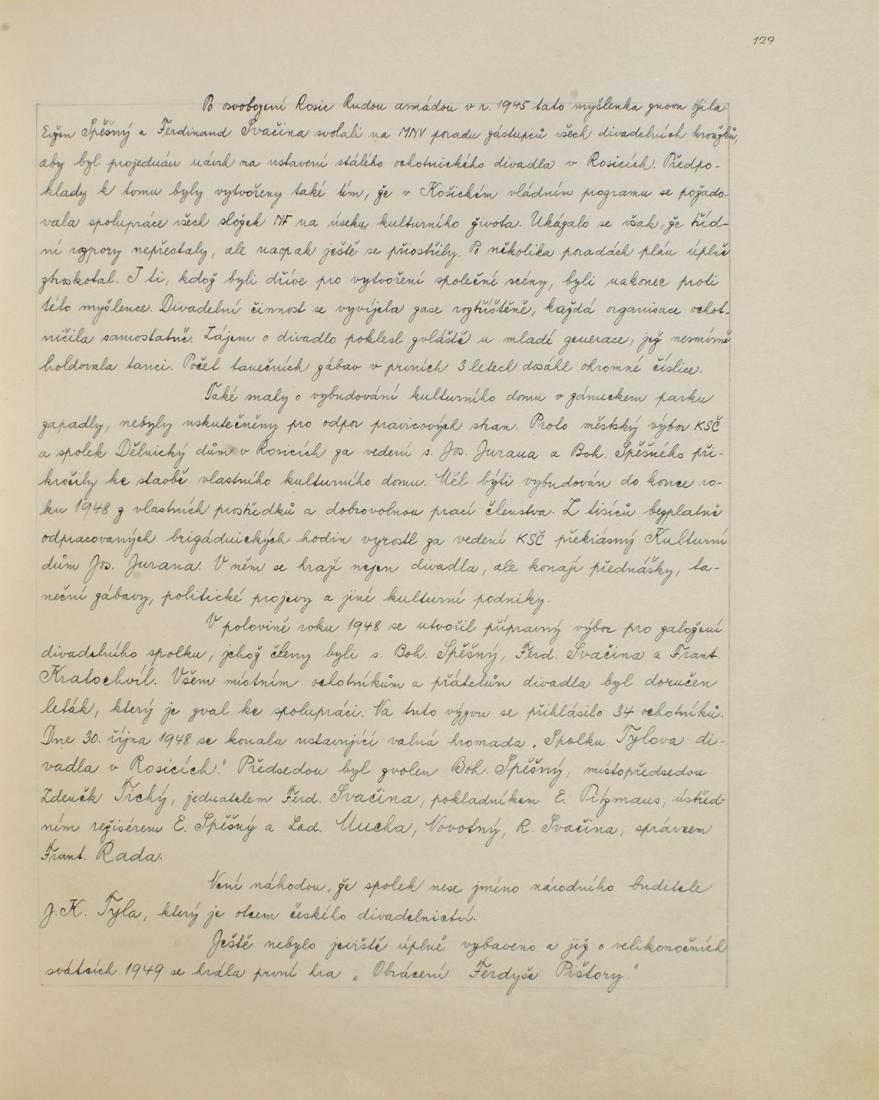 129
Po osvobození Rosic Rudou armádou v r. 1945 tato myšlenka znovu ožila
Evžen Spěšný a Ferdinand Svačina svolali na MNV poradu zástupců všech divadelních kroužků,
aby byl projednán návrh na ustavení stálého ochotnického divadla v Rosicích. Předpo-
klady k tomu byly vytvořeny také tím, že v Košickém vládním programu se požado-
vala spolupráce všech složek NF na úseku kulturního života. Ukázalo se však, že tříd-
ní rozpory nepřestaly, ale naopak ještě se přiostřily. Po několika poradách plán úplně
ztroskotal. I ti, kdož byli dříve pro vytvoření společné scény, byli nakonec proti
této myšlence. Divadelní činnost se vyvíjela zase roztříštěně, každá organisace ochot-
ničila samostatně. Zájem o divadlo poklesl zvláště u mladé generace, jež nesmírně
holdovala tanci. Počet tanečních zábav v prvních 3 letech dosáhl ohromné číslice.
Také snahy o vybudování kulturního domu v zámeckém parku
zapadly, nebyly uskutečněny pro odpor pravicových stran. Proto městský výbor KSČ
a spolek Dělnický dům v Rosicích za vedení s. Jos. Jurana a Boh. Spěšného při-
kročily ke stavbě vlastního kulturního domu. Měl býti vybudován do konce ro-
ku 1948 z vlastních prostředků a dobrovolnou prací členstva. Z tisíců bezplatně
odpracovaných brigádnických hodin vyrostl za vedení KSČ překrásný Kulturní
dům Jos. Jurana. V něm se hrají nejen divadla, ale konají přednášky, ta-
neční zábavy, politické projevy a jiné kulturní podniky.
V polovině roku 1948 se utvořil přípravný výbor pro založení
divadelního spolku, jehož členy byli s. Boh. Spěšný, Ferd. Svačina a Frant.
Kratochvíl. Všem místním ochotníkům a přátelům divadla byl doručen
leták, který je zval ke spolupráci. Na tuto výzvu se přihlásilo 34 ochotníků.
Dne 30. října 1948 se konala ustavující valná hromada „Spolku Tylova di-
vadla v Rosicích." Předsedou byl zvolen Boh. Spěšný, místopředsedou
Zdeněk Tichý, jednatelem Ferd. Svačina, pokladníkem E. Pizmaus, ústřed-
ním režisérem E. Spěšný a Lad. Mucha, Novotný, R. Svačina, správcem
Frant. Rada.
Není náhodou, že spolek nese jméno národního buditele
J. K. Tyla, který je otcem českého divadelnictví.
Ještě nebylo jeviště úplně vybaveno a již o velikonočních
svátcích 1949 se hrála první hra „Obrácení Ferdyše Pištory."